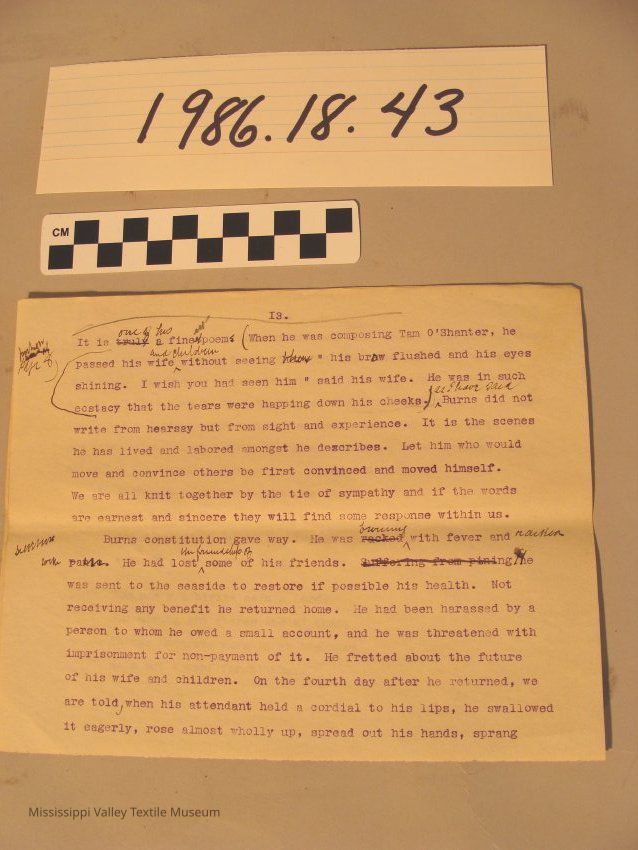 1986.18.43
CM
13.
one of his
It is truly a finest poem: (When he was composing Tam O'Shanter, he
and children
passed his wife without seeing them " his brow flushed and his eyes
shining. I wish you had seen him " said his wife. He was in such
as I have said
ecstacy that the tears were happing down his cheeks.) Burns did not
write from hearsay but from sight and experience. It is the scenes
he has lived and labored amongst he describes. Let him who would
move and convince others be first convinced and moved himself.
We are all knit together by the tie of sympathy and if the words
are earnest and sincere they will find some response within us.
burning
Burns constitution gave way. He was racked with fever and reaction
the friendship of
pains. He had lost some of his friends. Suffering from pining he
was sent to the seaside to restore if possible his health. Not
receiving any benefit he returned home. He had been harassed by a
person to whom he owed a small account, and he was threatened with
imprisonment for non-payment of it. He fretted about the future
of his wife and children. On the fourth day after he returned, we
are told, when his attendant held a cordial to his lips, he swallowed
it eagerly, rose almost wholly up, spread out his hands, sprang
Mississippi Valley Textile Museum